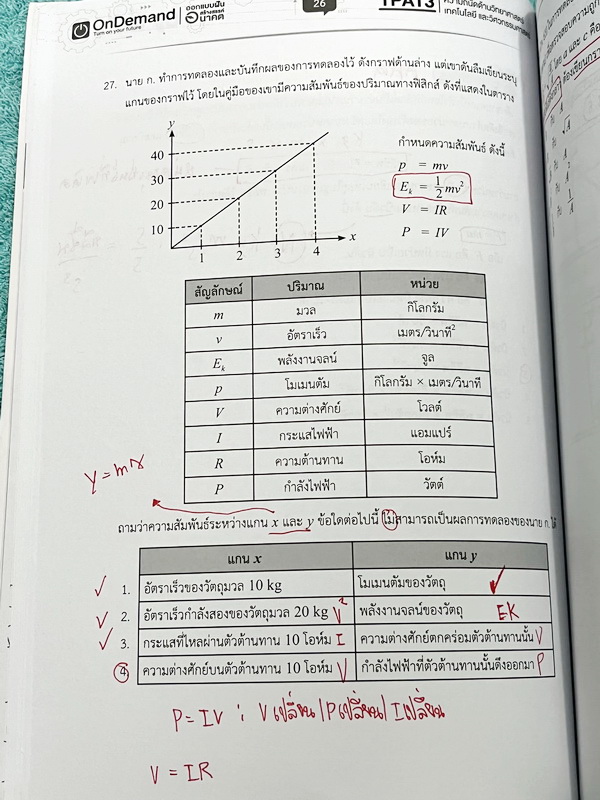 OnDemand
Turn on your future
ออกแบบฝัน
สร้างสรรค์
อนาคต
26
TPAT3
ความถนัดด้านวิทยาศาสตร์
เทคโนโลยี และวิศวกรรมศาสตร์
27. นาย ก. ทำการทดลองและบันทึกผลของการทดลองไว้ ดังกราฟด้านล่าง แต่เขาดันลืมเขียนระบุ
แกนของกราฟไว้ โดยในคู่มือของเขามีความสัมพันธ์ของปริมาณทางฟิสิกส์ ดังที่แสดงในตาราง
y
40
30
20
10
1 2 3 4 x
กำหนดความสัมพันธ์ ดังนี้
p = mv
E_k = 1/2 mv²
V = IR
P = IV
สัญลักษณ์ ปริมาณ หน่วย
m มวล กิโลกรัม
v อัตราเร็ว เมตร/วินาที²
E_k พลังงานจลน์ จูล
p โมเมนตัม กิโลกรัม × เมตร/วินาที
V ความต่างศักย์ โวลต์
I กระแสไฟฟ้า แอมแปร์
R ความต้านทาน โอห์ม
P กำลังไฟฟ้า วัตต์
y = mx
ถามว่าความสัมพันธ์ระหว่างแกน x และ y ข้อใดต่อไปนี้ ไม่สามารถเป็นผลการทดลองของนาย ก. ได้
แกน x แกน y
1. อัตราเร็วของวัตถุมวล 10 kg โมเมนตัมของวัตถุ
2. อัตราเร็วกำลังสองของวัตถุมวล 20 kg V² พลังงานจลน์ของวัตถุ EK
3. กระแสที่ไหลผ่านตัวต้านทาน 10 โอห์ม I ความต่างศักย์ตกคร่อมตัวต้านทานนั้น V
4. ความต่างศักย์บนตัวต้านทาน 10 โอห์ม V กำลังไฟฟ้าที่ตัวต้านทานนั้นดึงออกมา P
P = IV ; V เปลี่ยน / P เปลี่ยน / I เปลี่ยน
V = IR